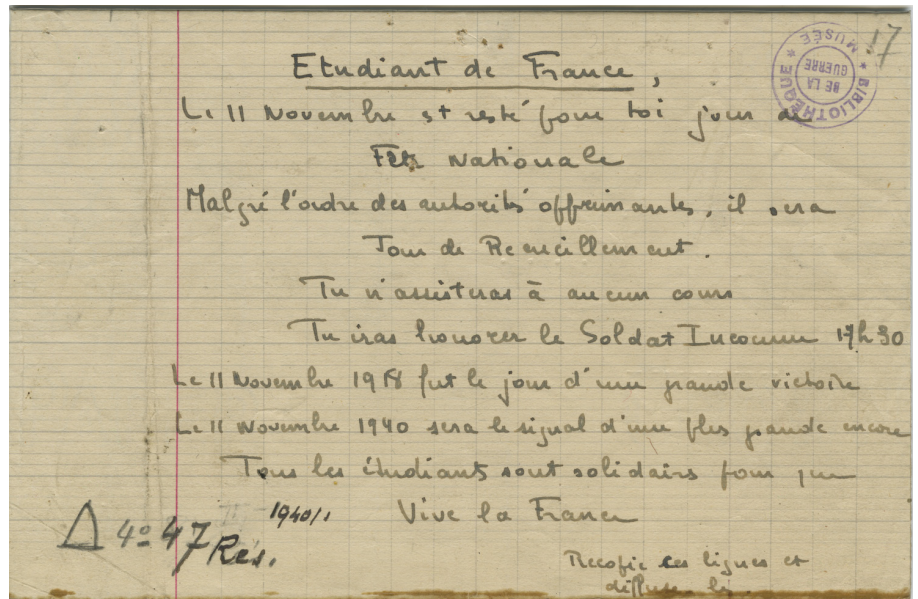 17
BIBLIOTHÈQUE * MUSÉE *
DE LA
GUERRE
Etudiant de France,
Le 11 Novembre est resté pour toi jour de
Fête Nationale
Malgré l'ordre des autorités opprimantes, il sera
Jour de Recueillement.
Tu n'assisteras à aucun cours
Tu iras honorer le Soldat Inconnu 17h30
Le 11 Novembre 1918 fut le jour d'une grande victoire
Le 11 Novembre 1940 sera le signal d'une plus grande encore
Tous les étudiants sont solidaires pour que
Vive la France
Recopie ces lignes et
diffuse les.
1940/1
Δ 4º 47 Rés.